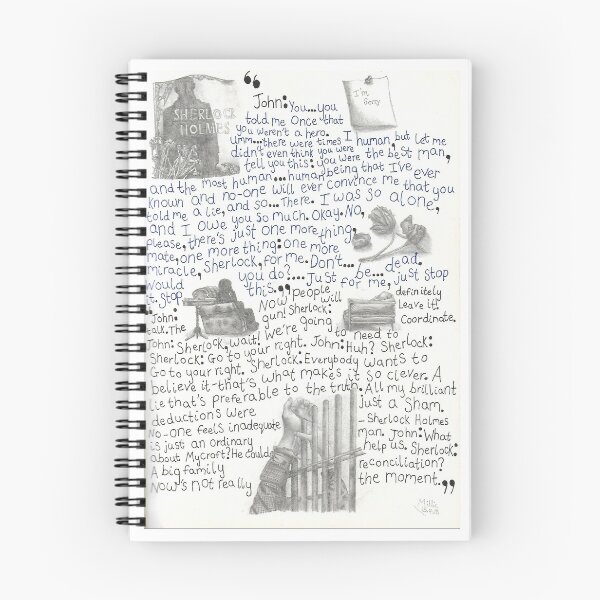 SHERLOCK
HOLMES
I'm
Sorry
“ John: You...you
told me once that
you weren't a hero.
umm...there were times I
didn't even think you were human, but let me
tell you this: you were the best man,
and the most human...human being that I've ever
known and no-one will ever convince me that you
told me a lie, and so... There. I was so alone,
and I owe you so much. Okay. No,
please, there's just one more thing,
mate, one more thing: one more
miracle, Sherlock, for me. Don't... be... dead.
Would you do?... Just for me, just stop
it. Stop this. ”
"John: Now people will definitely
talk. The gun! Sherlock: Leave it!
John: Sherlock, wait! We're going to need to Coordinate.
Sherlock: Go to your right. John: Huh? Sherlock:
Go to your right. Sherlock: Everybody wants to
believe it-that's what makes it so clever. A
lie that's preferable to the truth. All my brilliant
deductions were just a Sham.
No-one feels inadequate - Sherlock Holmes
is just an ordinary man. John: What
about Mycroft? He could help us. Sherlock:
A big family reconciliation?
Now's not really the moment. ”